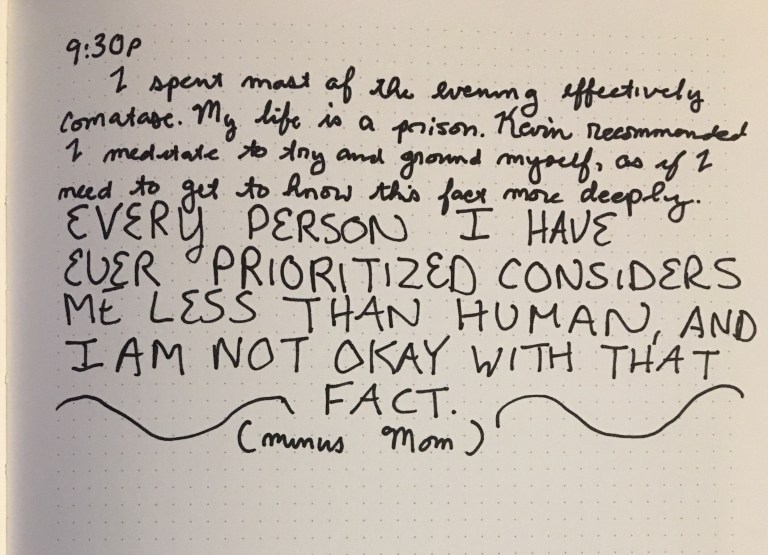 9:30P
I spent most of the evening effectively
comatose. My life is a prison. Kevin recommended
I meditate to try and ground myself, as if I
need to get to know this fact more deeply.
EVERY PERSON I HAVE
EVER PRIORITIZED CONSIDERS
ME LESS THAN HUMAN, AND
I AM NOT OKAY WITH THAT
FACT.
(minus Mom)